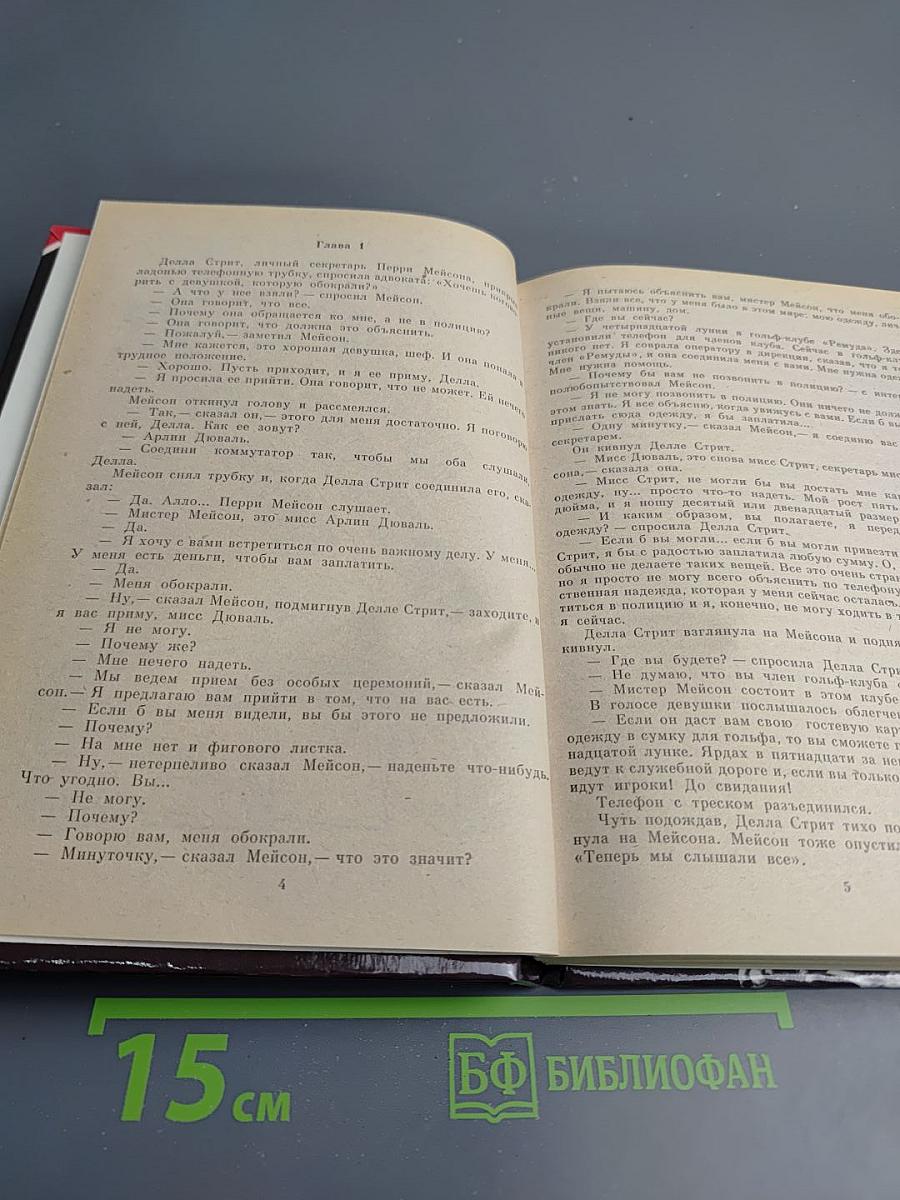 Глава 1
Делла Стрит, личный секретарь Перри Мейсона,
ладонью телефонную трубку, спросила адвоката: «Хочешь
рить с девушкой, которую обокрали?»
— А что у нее взяли? — спросил Мейсон.
— Она говорит, что все.
— Почему она обращается ко мне, а не в полицию?
— Она говорит, что должна это объяснить.
— Пожалуй,— заметил Мейсон.
— Мне кажется, это хорошая девушка, шеф. И она попала в
трудное положение.
— Хорошо. Пусть приходит, и я ее приму, Делла.
— Я просила ее прийти. Она говорит, что не может. Ей нечего
надеть.
Мейсон откинул голову и рассмеялся.
— Так,— сказал он,— этого для меня достаточно. Я поговорю
с ней, Делла. Как ее зовут?
— Арлин Дюваль.
— Соедини коммутатор так, чтобы мы оба слушали,
Делла.
Мейсон снял трубку и, когда Делла Стрит соединила его, ска-
зал:
— Да. Алло... Перри Мейсон слушает.
— Мистер Мейсон, это мисс Арлин Дюваль.
— Да.
— Я хочу с вами встретиться по очень важному делу. У меня...
У меня есть деньги, чтобы вам заплатить.
— Да.
— Меня обокрали.
— Ну,— сказал Мейсон, подмигнув Делле Стрит,— заходите, и
я вас приму, мисс Дюваль.
— Я не могу.
— Почему же?
— Мне нечего надеть.
— Мы ведем прием без особых церемоний,— сказал Мей-
сон.— Я предлагаю вам прийти в том, что на вас есть.
— Если б вы меня видели, вы бы этого не предложили.
— Почему?
— На мне нет и фигового листка.
— Ну,— нетерпеливо сказал Мейсон,— наденьте что-нибудь.
Что угодно. Вы...
— Не могу.
— Почему?
— Говорю вам, меня обокрали.
— Минуточку,— сказал Мейсон,— что это значит?
4
— Я пытаюсь объяснить вам, мистер Мейсон, что меня обо-
крали. Взяли все, что у меня было в этом мире: мою одежду,
ные вещи, машину, дом.
— Где вы сейчас?
— У четырнадцатой лунки в гольф-клубе «Ремуда».
установили телефон для членов клуба. Сейчас в
никого нет. Я соврала оператору в дирекции, сказав, что я
член «Ремуды», и она соединила меня с вами. Мне нужна
Мне нужна помощь.
— Почему бы вам не позвонить в полицию? — с
полюбопытствовал Мейсон.
— Я не могу позвонить в полицию. Они ничего не
этом знать. Я все объясню, когда увижусь с вами. Если б
прислать сюда одежду, я бы заплатила...
— Одну минутку,— сказал Мейсон,— я соединю вас
секретарем.
Он кивнул Делле Стрит.
— Мисс Дюваль, это снова мисс Стрит, секретарь
сона,— сказала она.
— Мисс Стрит, не могли бы вы достать мне
одежду, ну... просто что-то надеть. Мой рост пять
дюйма, и я ношу десятый или двенадцатый размер
— И каким образом, вы полагаете, я
одежду? — спросила Делла Стрит.
— Если б вы могли... если б вы могли привезти
Стрит, я бы с радостью заплатила любую сумму. О,
обычно не делаете таких вещей. Все это очень
но я просто не могу всего объяснить по телефону
ственная надежда, которая у меня сейчас осталась.
титься в полицию и я, конечно, не могу ходить в
я сейчас.
Делла Стрит взглянула на Мейсона и
кивнул.
— Где вы будете? — спросила Делла
— Не думаю, что вы член гольф-клуба
— Мистер Мейсон состоит в этом клубе
В голосе девушки послышалось
— Если он даст вам свою гостевую
одежду в сумку для гольфа, то вы сможете
надцатой лунке. Ярдах в пятнадцати за
ведут к служебной дороге и, если вы только
идут игроки! До свидания!
Телефон с треском разъединился.
Чуть подождав, Делла Стрит тихо
нула на Мейсона. Мейсон тоже
«Теперь мы слышали все».
5
15 см
БФ БИБЛИОФАН